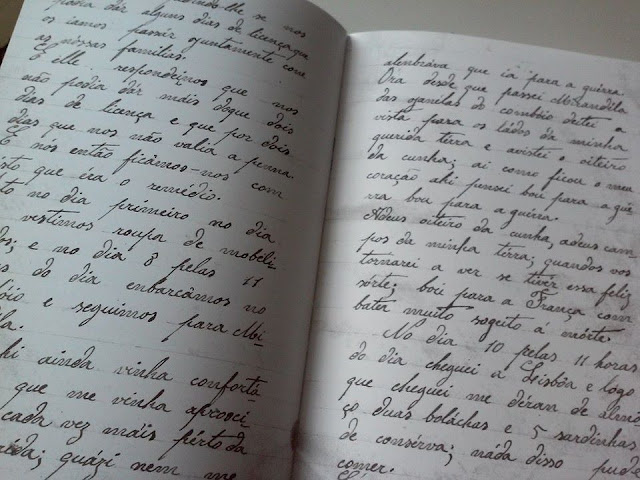 se nos
podia dár alguns dias de licença, que
os iamos passár ajuntamente com
as nóssas familias.
E elle respondeinos que nos
não podia dár mais deque dois
dias de liança e que por dois
dias que nos não valia a penna.
E nós então ficámos-nos com
isto que éra o remédio.
no dia primeiro no dia
vestimos roupa de mobeli-
e no dia 8 pelas 11
do dia enbarcámos no
e seguimos para Mi-
ahi ainda vinha confortá-
que me vinha aprocci-
cada vez mais pérto da
quázi nem me
alembráva que ia para a guérra.
Óra desde que passei Mirandila
das janélas do comboio deitei a
vista para os ládos da minha
querida térra e avistei o oiteiro
da cunha; ai como ficou o meu
coração ahi pensei bou para a gué-
rra bou para a guérra.
Adeus oiteiro da cunha, adeus cam
pos da minha terra; quando vos
tornarei a ver se tiver essa feliz
sórte; boci para a França com
bater muito sogeito á mórte.
No dia 10 pelas 11 horas
do dia cheguei a Lisbôa e logo
que cheguei me diram de almo
ço duas boláchas e 5 sardinhas
de consérva; náda disso pude
comer.